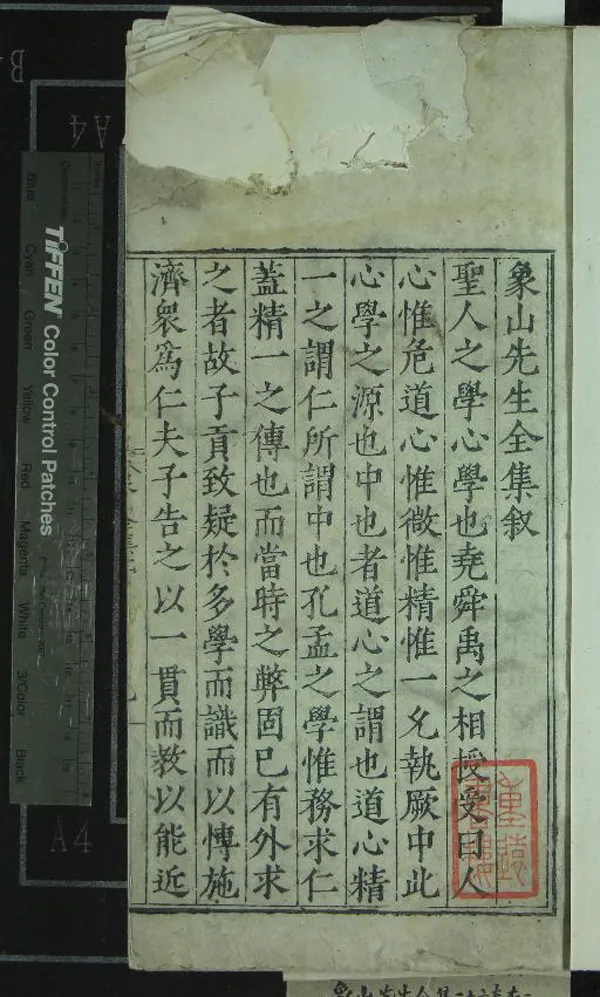 象山先生全集叙
聖人之學心學也堯舜禹之相授受曰人
心惟危道心惟微惟精惟一允執厥中此
心學之源也中也者道心之謂也道心精
一之謂仁所謂中也孔孟之學惟務求仁
蓋精一之傳也而當時之弊固已有外求
之者故子貢致疑於多學而識而以愽施
濟衆爲仁夫子告之以一貫而教以能近
TIFFEN Color Control Patches
Blue
Cyan
Green
Yellow
Red
Magenta
White
3/Color
Black
A4
A4